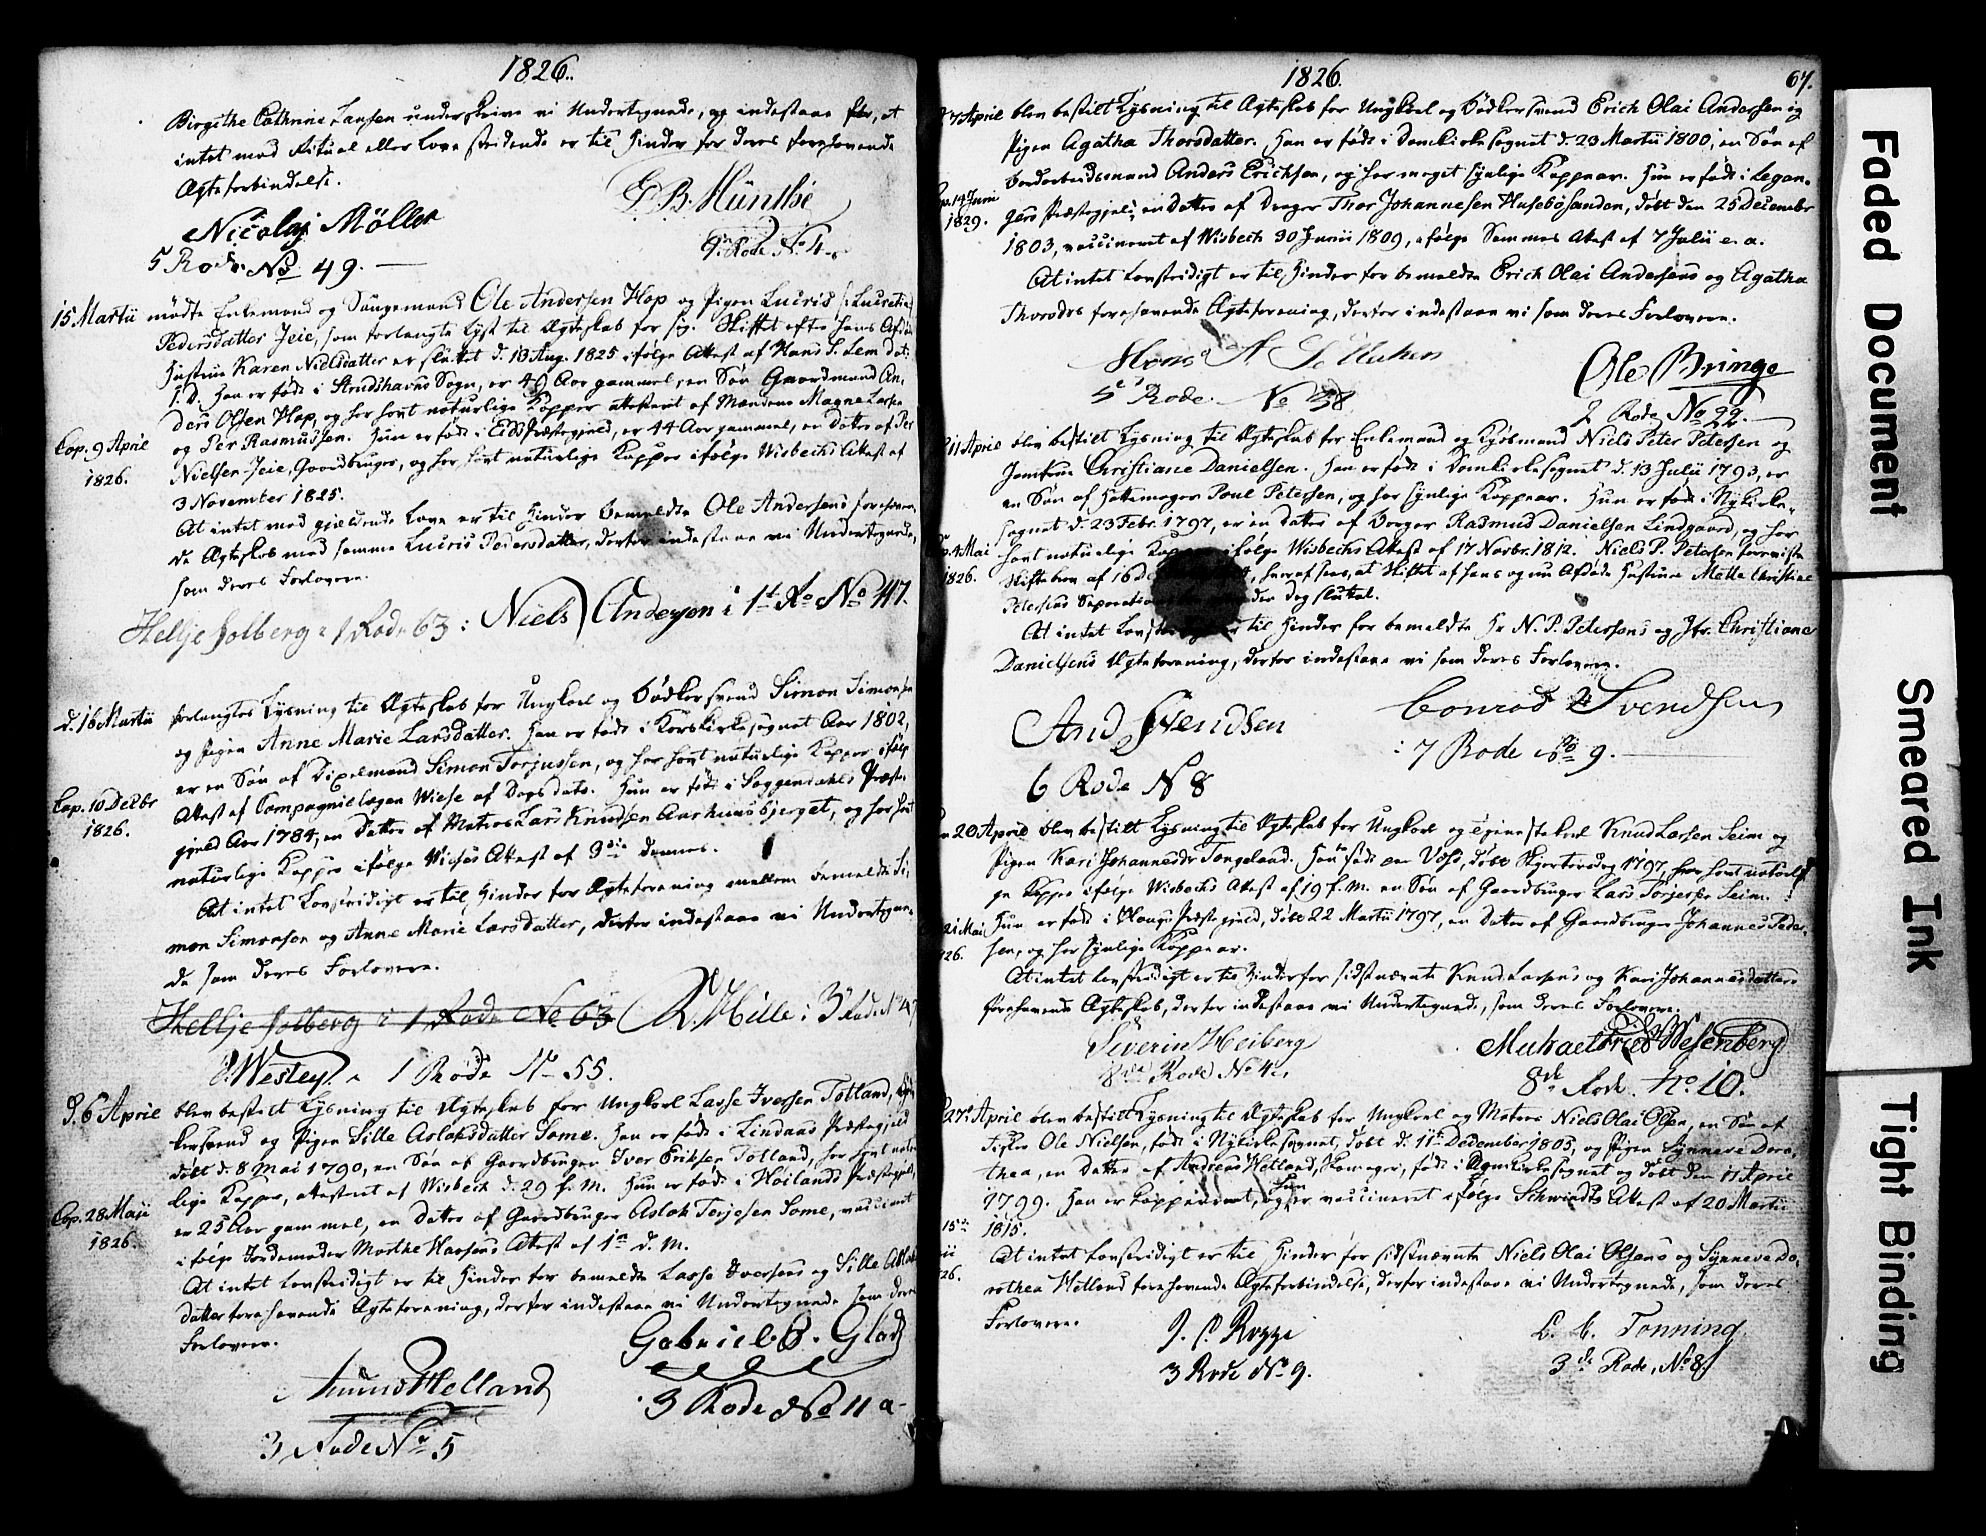 1826.
Birgithe Cathrine Larsen underskrive vi Undertegnede, og indestaae for, at
intet mod Ritual eller Love stridende er til Hinder for deres forehavende
Ægteforbindelse.
Nicolay Möller
G. B. Münthe
5 Rode No 49.
9 Rode No 4
15 Martii mødte Enkemand og Ole Andersen Hop og Pigen Lucris (: Lucretia
Pedersdatter Jeie, som forlangte Lyst til Ægteskab for sig. Skiftet efter hans Afdøde
Hustrue Karen Nielsdatter er sluttet d. 13 Aug. 1825 ifølge Attest af Hans S. Lem dat.
s. D. Han er født i Strudshavns Sogn, er 49 Aar gammel, en Søn Gaardmand An-
ders Olsen Hop, og har havt naturlige Kopper attesteret af Mændene Magne Larsen
og Per Rasmussen. Hun er født i Eids Præstegjeld, er 44 Aar gammel, en Datter af Per
Cop. 9 April
1826.
Nielsen Jeie, Gaardbruger, og har havt naturlige Kopper ifølge Wisbechs Attest af
3 November 1825.
At intet mod gjeldende Love er til Hinder bemeldte Ole Andersens forehaven-
de Ægteskab med samme Lucris Pedersdatter, derfor indestaae vi Undertegnede,
som deres Forlovere.
Hellje Solberg i 1 Rode 63 : Niels Andersen i 1st Ro No 47.
d. 16 Martii forlangtes Lysning til Ægteskab for Ungkarl og Bødkersvend Simon Simonsen
og Pigen Anne Marie Larsdatter. Han er født i Korskirkesognet Aar 1802,
er en Søn af Simon Torjussen, og har havt naturlige Kopper ifølge
Attest af Compagnielægen Wiese af Dags dato. Hun er født i Soggendahls Præste-
Cop. 10 Decbr
1826.
gjeld Aar 1784, en Datter af Matros Lars Knudsen Aarhuusbjerget, og har havt
naturlige Kopper ifølge Wieses Attest af 3die dennes.
At intet Lovstridigt er til Hinder for Ægteforening mellem bemeldte Si-
mon Simonsen og Anne Marie Larsdatter, derfor indestaae vi Undertegne-
de som deres Forlovere.
Hellje Solberg i 1 Rode No 63 R. Hille i 3 Rode No 4
Westey. 1 Rode No 55.
d. 6 April blev bestilt Lysning til Ægteskab for Ungkarl Lasse Iversen Totland,
kersvend og Pigen Sille Aslaksdatter Some. Han er født i Lindaas Præstegjeld
døbt d. 8 Mai 1790, en Søn af Gaardbruger Iver Eriksen Totland, har havt natur-
lige Kopper, attesteret af Wisbech d. 29 f. M. Hun er født i Høilands Præstegjeld,
Cop. 28 Maii
1826.
er 25 Aar gammel, en Datter af Gaardbruger Aslak Torjesen Some, vaccineret
ifølge Jordemoder Marthe Hansens Attest af 1ste d. M.
At intet Lovstridigt er til Hinder for bemeldte Lasse Iversens og Sille Aslaks-
datter forehavende Ægteforening, derfor indestaae vi Undertegnede som deres
Forlovere.
Gabriel B. Gløds
Amund Helland
3 Rode No 11 a
3 Rode No 5
1826.
67.
7 April blev bestilt Lysning til Ægteskab for Ungkarl og Bødkersvend Erich Olai Andersen og
Pigen Agatha Thorsdatter. Han er født i Domkirkesognet d. 23 Martii 1800, en Søn af
Anders Erichsen, og har meget synlige Koppear. Hun er født i Legan-
Cop. 14 Juni
1829.
gers Præstegjeld, en Datter af Drager Thor Johannesen Husebösanden, døbt den 25 December
1803, vaccineret af Wisbech 30 Junii 1809, ifølge Sammes Attest af 7 Julii e. a.
At intet Lovstridigt er til Hinder for bemeldte Erich Olai Andersens og Agatha
Thorsdrs forehavende Ægteforening, derfor indestaae vi som deres Forlovere.
Hans A
Ole Bringe
5te Rode. No 38
2 Rode No 22.
11 April blev bestilt Lysning til Ægteskab for Enkemand og Kjøbmand Niels Peter Petersen og
Jomfrue Christiane Danielsen. Han er født i Domkirkesognet d. 13 Julii 1793, er
en Søn af Hattemager Poul Petersen, og har synlige Koppear. Hun er født i Nykirke-
sognet d. 23 Febr. 1797, er en Datter af Borger Rasmus Danielsen Lindgaard, og har
4 Mai
1826.
havt naturlige ifølge Wisbechs Attest af 17 Novbr. 1812. Niels P. Petersen foreviste
Skiftebrev af 16 hvoraf sees, at Skiftet af hans og nu Afdøde Hustrue Mette Christine
Petersens Separation der dog sluttet.
At intet er til Hinder for bemeldte Hr N. P. Petersens og Jfr. Christiane
Danielsens Ægteforening, derfor indestaae vi som deres Forlovere.
And Svendsen
Conrad Svendsen
i 7 Rode No 9.
6 Rode N 8
20 April blev bestilt Lysning til Ægteskab for Ungkarl og Knud Larsen Seim og
Pigen Kari Johannesdr Tongeland. Han født paa Voss, døbt 1797, har havt naturli-
ge Kopper ifølge Wisbechs Attest af 19 f. M. en Søn af Gaardbruger Lars Torjersen Seim.
21 Mai
26.
Hun er født i Haugs Præstegjeld, døbt 22 Martii 1797, en Datter af Gaardbruger Johannes Peder-
sen, og har synlige Koppear.
At intet Lovstridigt er til Hinder for sidstnævnte Knud Larsens og Kari Johannesdatters
forehavende Ægteskab, derfor indestaae vi Undertegnede, som deres Forlovere.
Severin Heiberg
Michael Wesenberg
8de Rode No 4
8de Rode. No 10.
27 April blev bestilt Lysning til Ægteskab for Ungkarl og Matros Niels Olai Olsen, en Søn af
Fisker Ole Nielsen, født i Nykirkesognet, døbt d. 11te December 1805, og Pigen Synneve Doro-
thea, en Datter af Andreas Hetland, født i Domkirkesognet og døbt den 11 April
1799. Han er og hun er vaccineret ifølge Schwindts Attest af 20 Martii
15de
26.
1815.
At intet Lovstridigt er til Hinder for sidstnævnte Niels Olai Olsens og Synneve Do-
rothea Hetland forehavende Ægteforbindelse, derfor indestaae vi Undertegnede, som deres
Forlovere.
3 Rode No 9.
Tonning
3de Rode, No 8.
Faded Document
Smeared Ink
Tight Binding